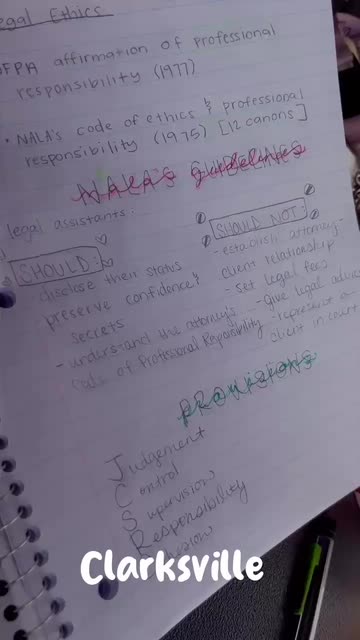 Legal Ethics
NFPA affirmation of professional
responsibility (1977)
• NALA's code of ethics & professional
responsibility (1975) [12 canons]
NALA's guidelines
legal assistants:
SHOULD:
disclose their status
preserve confidence &
secrets
- understand the attorney's
Code of Professional Responsibility
SHOULD NOT:
- establish attorney-
client relationship
- set legal fees
- give legal advice
- represent a
client in court
PROVISIONS
Judgement
Control
Supervision
Responsibility
Clarksville